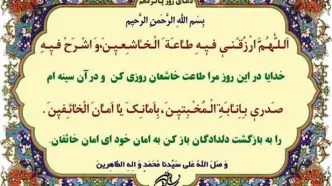 دعای روز پانزدهم
بِسْمِ اللهِ الرَّحْمنِ الرَّحِیمِ
اَللّهُمَّ ارْزُقْنی فیهِ طاعَةَ الْخاشِعینَ،وَ اشْرَحْ فیهِ
خدایا در این روز مرا طاعت خاشعان روزی کن و در آن سینه ام
صَدری بِاِنابَةِ الْمُخْبِتینَ،بِاَمانِکَ یا اَمانَ الْخائِفینَ.
را به بازگشت دلدادگان باز کن به امان خود ای امان خائفان.
وَ صَلَّ اللهُ عَلی سَیِّدِنا مُحَمَّدٍ وَ الِهِ الطّاهِرینَ